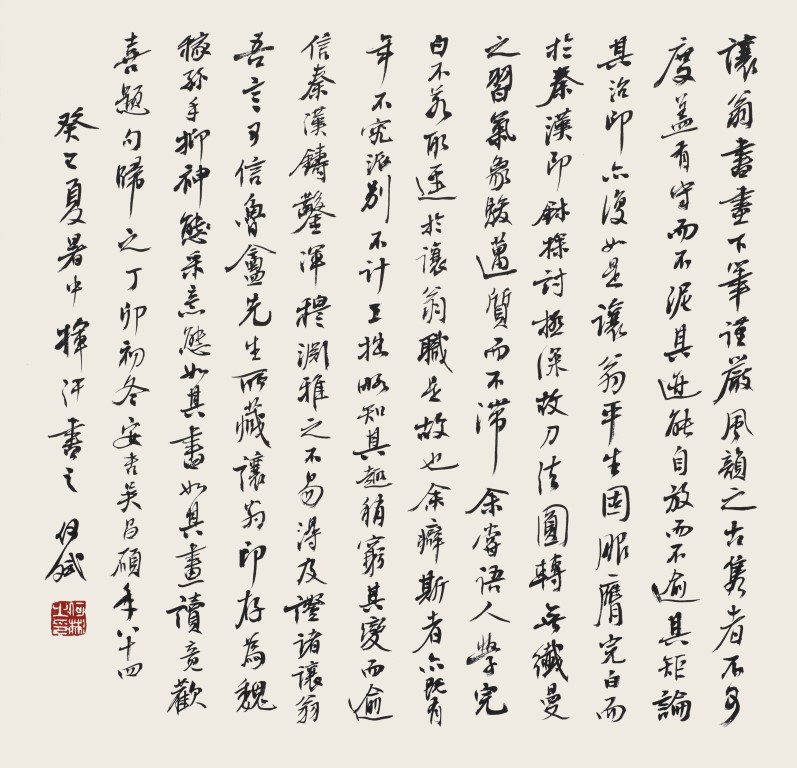 讓翁書畫下筆謹嚴風韻之古雋者不可
度蓋有守而不泥其迹能自放而不逾其矩論
其治印亦復如是讓翁平生固服膺完白而
於秦漢印鉨探討極深故刀法圓轉無纖曼
之習氣象駿邁質而不滯余嘗語人學完
白不若取逕於讓翁職是故也余癖斯者亦既有
年不究派別不計工拙略知其趣稍窮其變而逾
信秦漢鑄鑿渾穆淵雅之不易得及證諸讓翁
吾言可信魯盦先生所藏讓翁印存為魏
稼孫手拓神態采意態如其書如其畫讀竟歡
喜題句歸之丁卯初冬安吉吳昌碩年八十四
癸巳夏暑中揮汗書之
何林之印